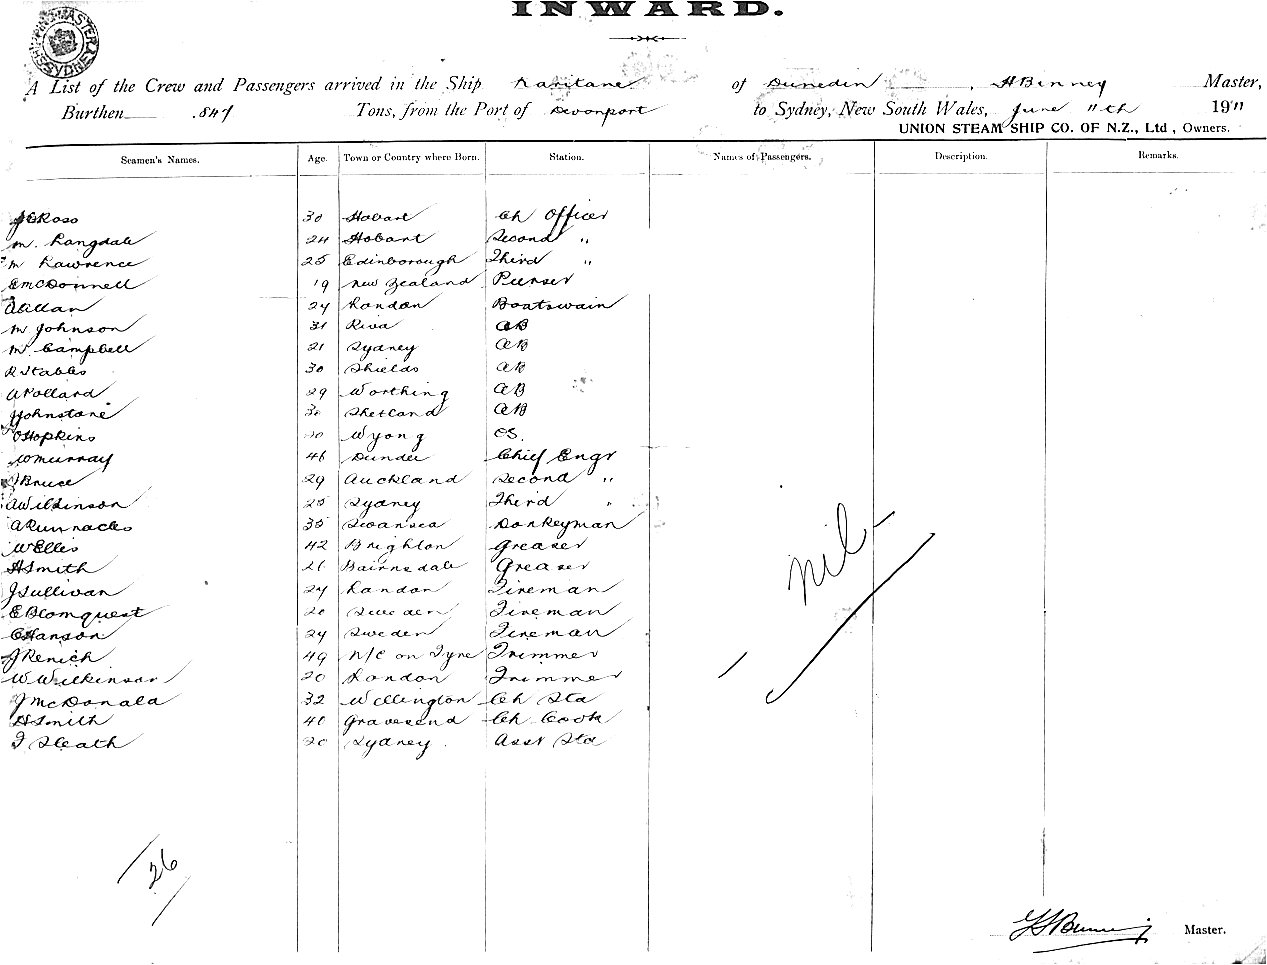 INWARD.
A List of the Crew and Passengers arrived in the Ship Karitane of Dunedin, H Binney Master,
Burthen 847 Tons, from the Port of Devonport to Sydney, New South Wales, June 11th 1911
UNION STEAM SHIP CO. OF N.Z., Ltd, Owners.
Seamen's Names. Age. Town or Country where Born. Station. Names of Passengers. Description. Remarks.
Ross 30 Hobart Ch Officer
M. Langdale 24 Hobart Second "
M Lawrence 25 Edinborough Third "
E McDonnell 19 New Zealand Purser
Allan 24 London Boatswain
M Johnson 31 Riva AB
M Campbell 21 Sydney AB
R Stables 30 Shields AB
A Pollard 29 Worthing AB
J Johnstone 30 Shetland AB
C Hopkins 20 Wyong OS.
W Murray 46 Dundee Chief Engr
J Bruce 29 Auckland Second "
A Wilkinson 25 Sydney Third "
A Runnacles 35 Swansea Donkeyman
W Ellis 42 Brighton Greaser
H Smith 26 Bairnsdale Greaser
J Sullivan 24 London Fireman
E Blomquest 20 Sweden Fireman
C Hanson 24 Sweden Fireman
J Renich 49 N/C on Tyne Trimmer
W Wilkinson 20 London Trimmer
J McDonald 32 Wellington Ch Std
H Smith 40 Gravesend Ch Cook
J Heath 20 Sydney Asst Std
nil
26
Binney Master.